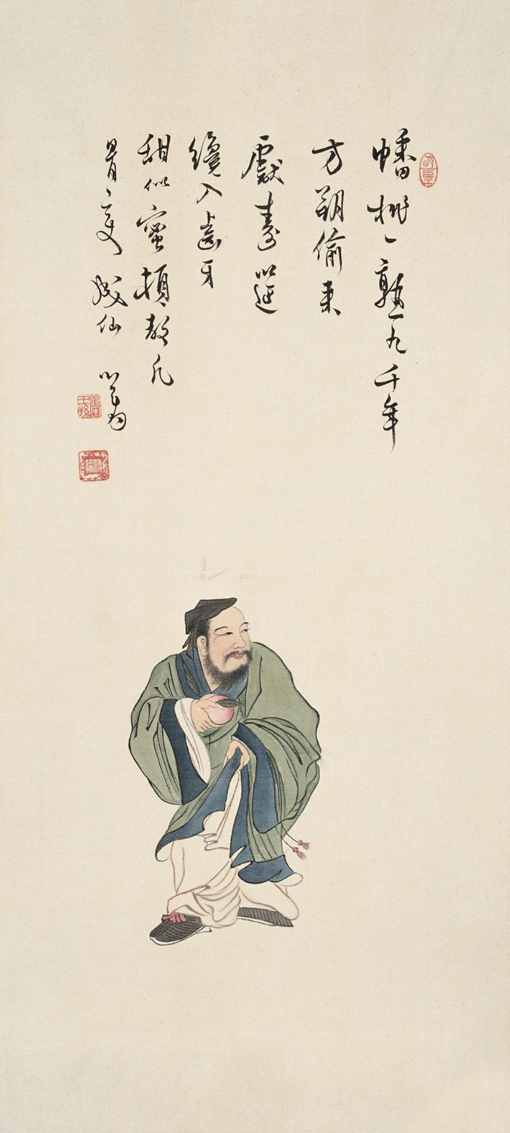 幡桃一熟九千年
方朔偷来
獻壽筵
纔入齒牙
甜似蜜頓教凡
骨變成仙 心畬